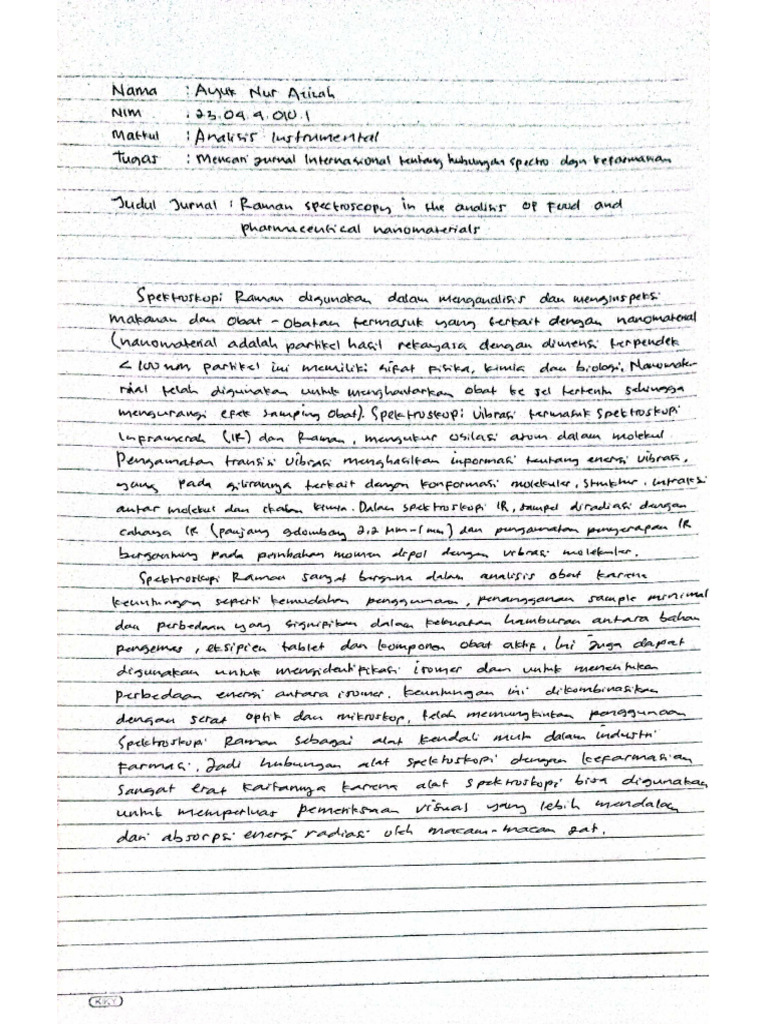 Nama : Ayuk Nur Azizah
NIM : 23.04.4.010.1
Matkul : Analisis Instrumental
Tugas : Mencari Jurnal Internasional tentang hubungan spectro dgn kefarmasian
Judul Jurnal : Raman spectroscopy in the analisis of Food and
pharmaceutical nanomaterials
Spektroskopi Raman digunakan dalam menganalisis dan menginspeksi
makanan dan obat-obatan termasuk yang terkait dengan nanomaterial
(nanomaterial adalah partikel hasil rekayasa dengan dimensi terpendek
<100 nm partikel ini memiliki sifat fisika, kimia dan biologi. Nanomate-
rial telah digunakan untuk menghantarkan obat ke sel tertentu sehingga
mengurangi efek samping obat). Spektroskopi vibrasi termasuk spektroskopi
Inframerah (IR) dan Raman, mengukur osilasi atom dalam molekul.
Pengamatan transisi vibrasi menghasilkan informasi tentang energi vibrasi,
yang pada gilirannya terkait dengan konformasi molekuler, struktur, intraksi
antar molekul dan ikatan kimia. Dalam spektroskopi IR, sampel diradiasi dengan
cahaya IR (panjang gelombang 2,2 µm-1 mm) dan pengamatan penyerapan IR
bergantung pada perubahan momen dipol dengan vibrasi molekuler.
Spektroskopi Raman sangat berguna dalam analisis obat karena
keuntungan seperti kemudahan penggunaan, penangganan sample minimal
dan perbedaan yang signifikan dalam kekuatan hamburan antara bahan
pengemas, eksipien tablet dan komponen obat aktif. Ini juga dapat
digunakan untuk mengidentifikasi isomer dan untuk menentukan
perbedaan energi antara isomer. Keuntungan ini dikombinasikan
dengan serat optik dan mikroskop, telah memungkinkan penggunaan
Spektroskopi Raman sebagai alat kendali mutu dalam industri
Farmasi. Jadi hubungan alat spektoskopi dengan kefarmasian
sangat erat kaitannya karena alat spektroskopi bisa digunakan
untuk memperluas pemeriksaan visual yang lebih mendalam
dari absorpsi energi radiasi oleh macam-macam zat.
KKY